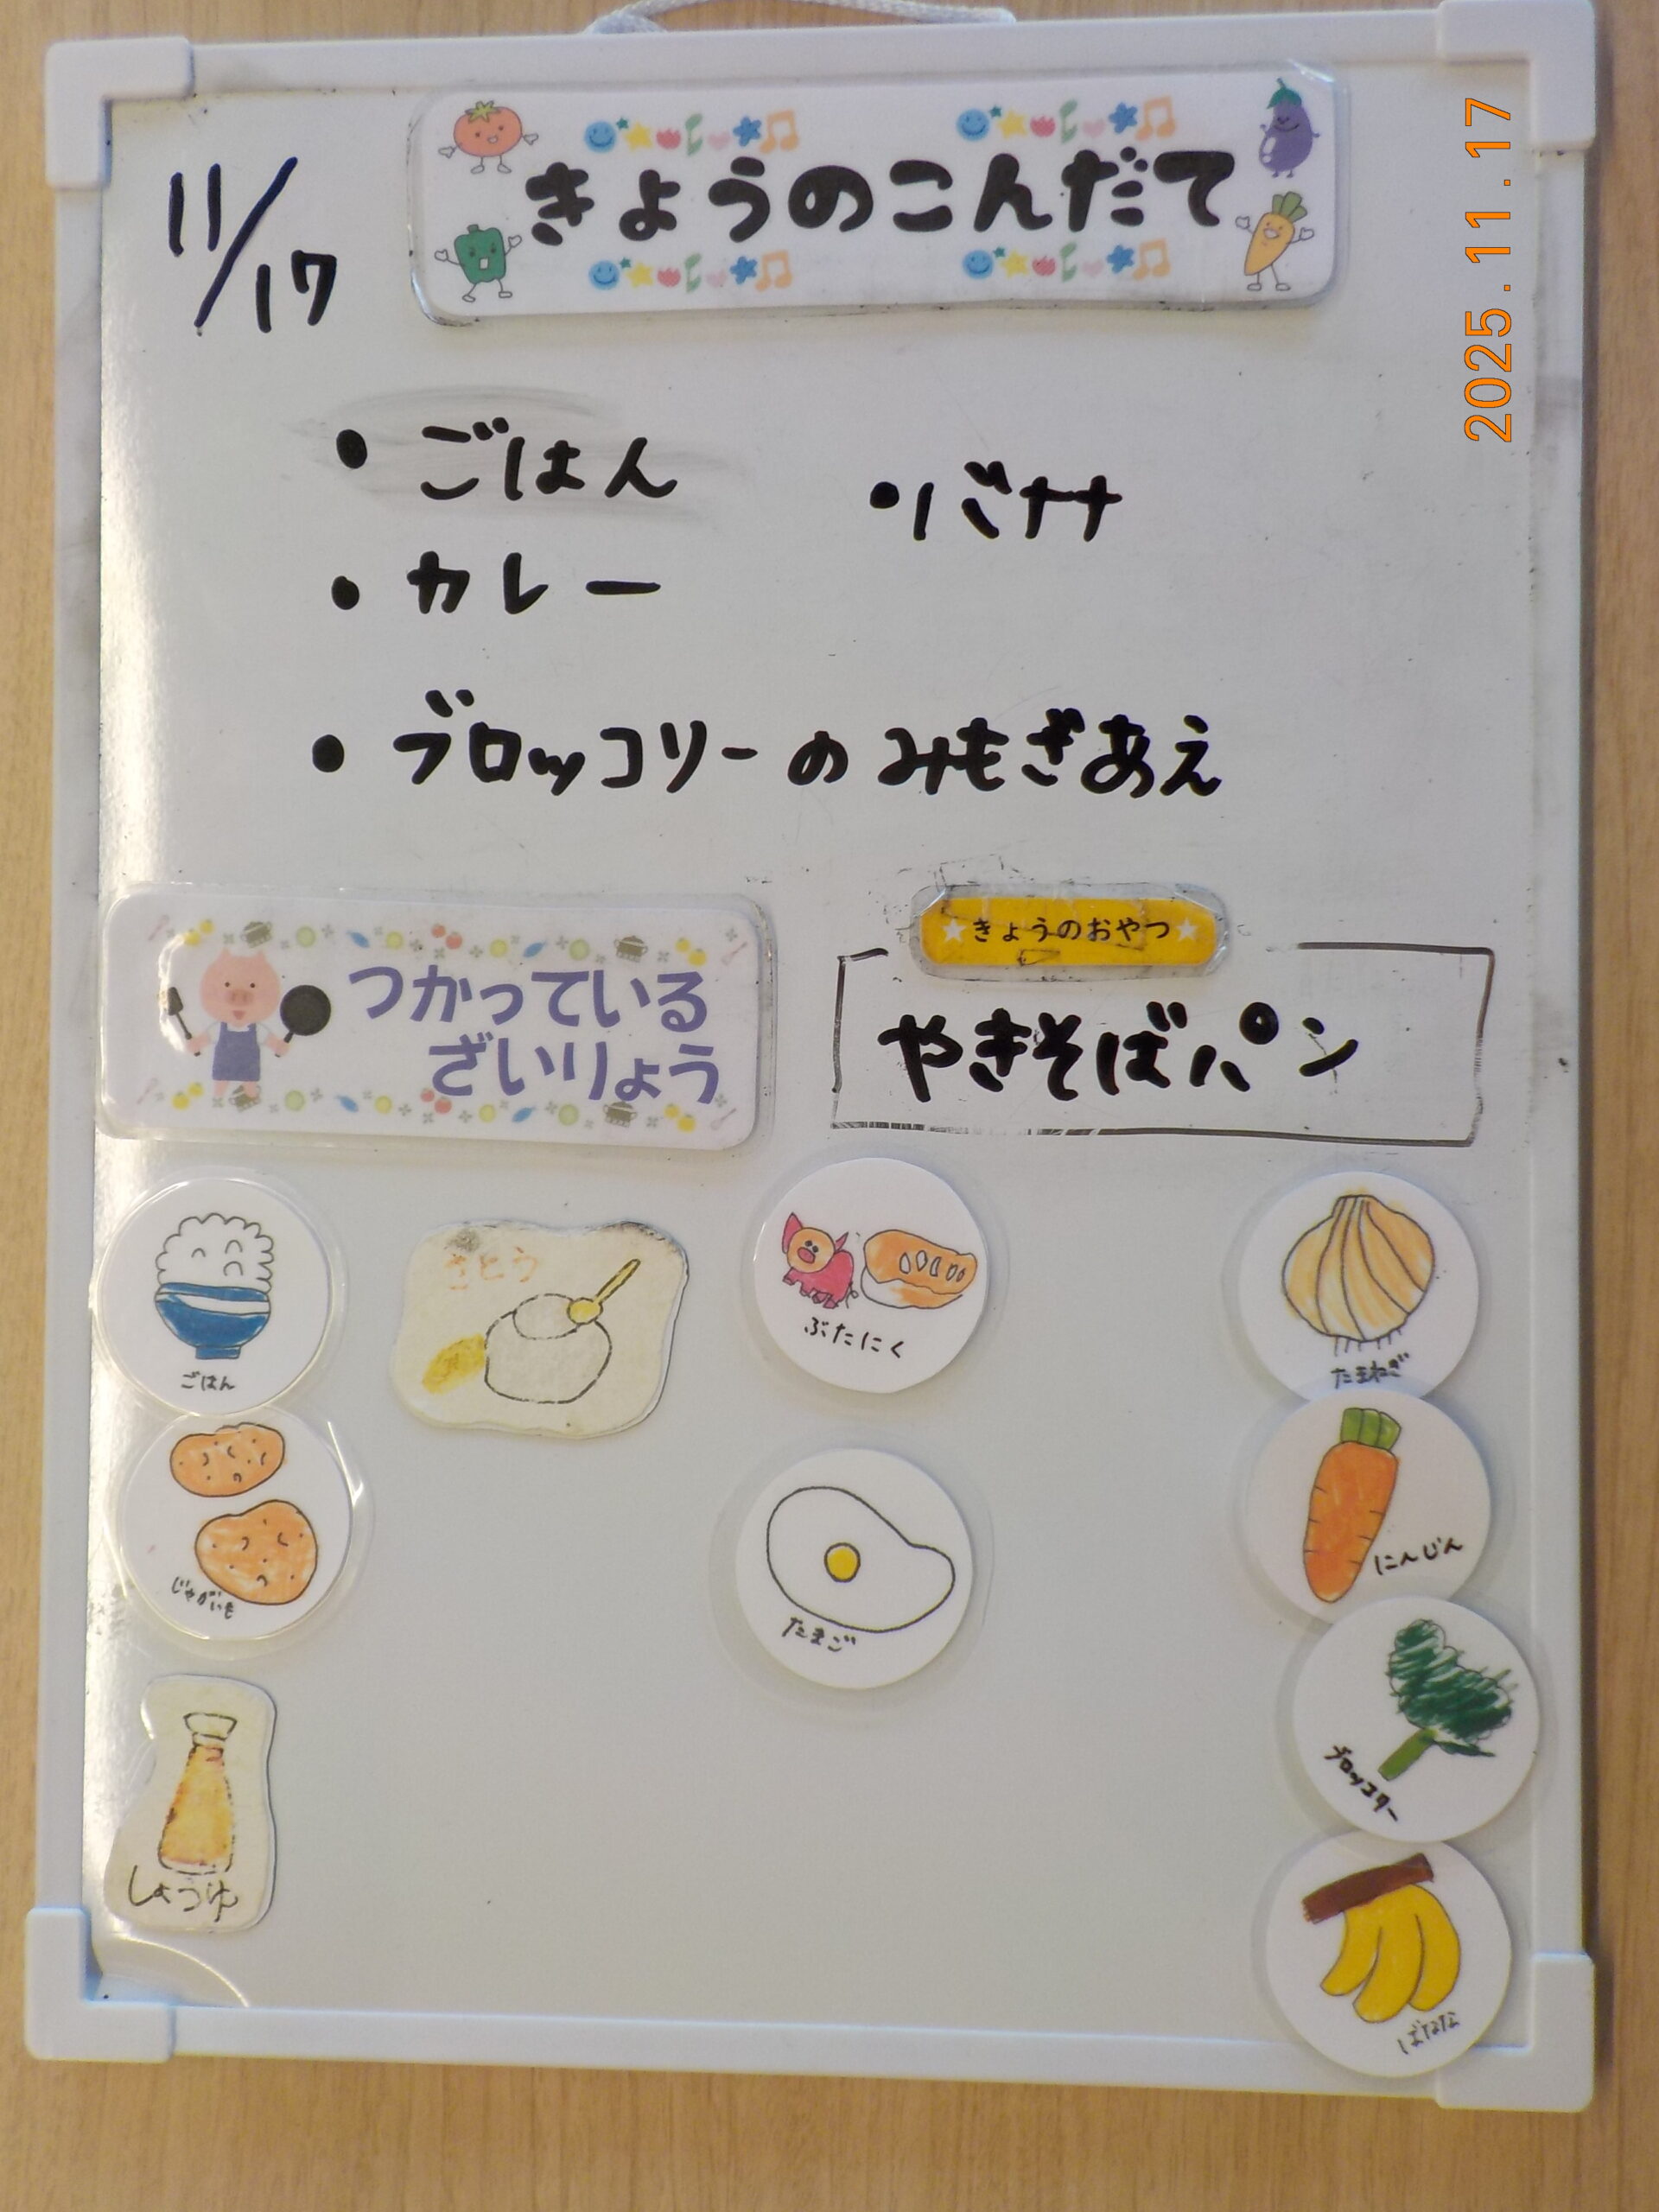 きょうのこんだて
11/17
2025.11.17
・ごはん
・バナナ
・カレー
・ブロッコリーのみもざあえ
つかっている
ざいりょう
きょうのおやつ
やきそばパン
ごはん
さとう
ぶたにく
たまねぎ
じゃがいも
たまご
にんじん
しょうゆ
ブロッコリー
ばなな